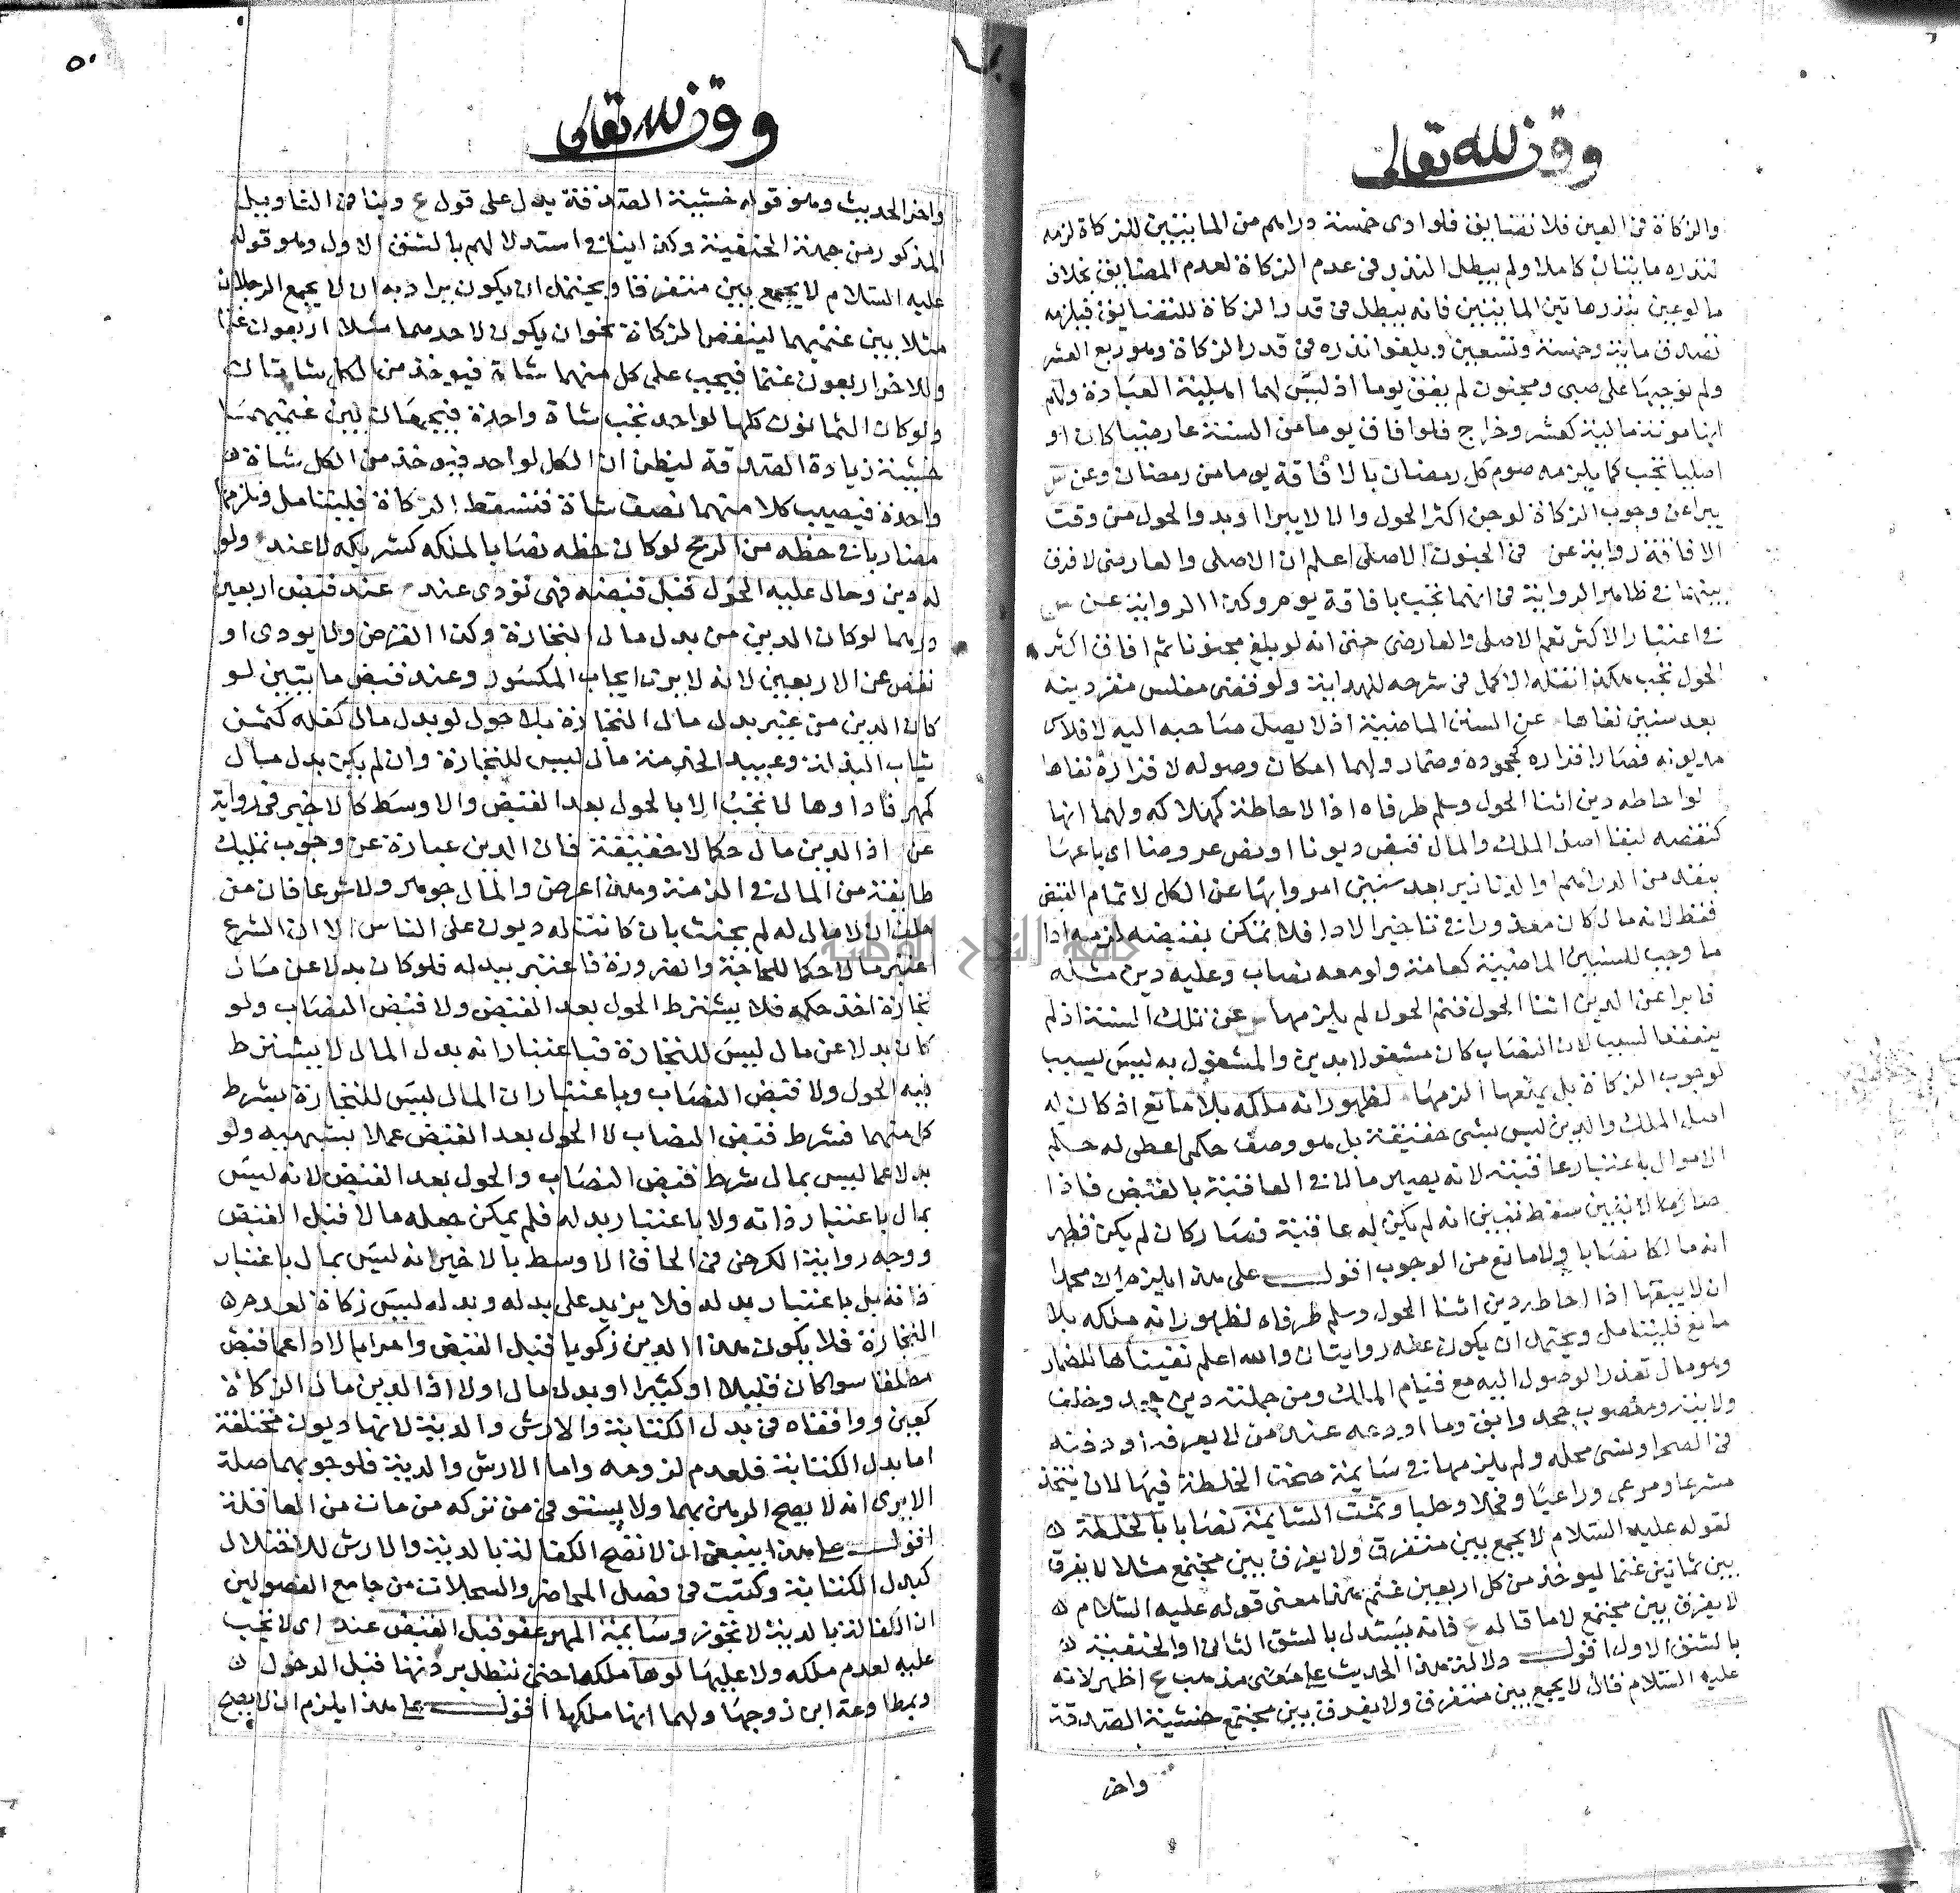 وقف لله تعالى
والزكاة في العين فلا تضايق فلو ادى خمسة دراهم من المايتين للزكاة لزمه
لنذره مايتان كاملا ولم يبطل النذر في عدم الزكاة لعدم المضايق بخلاف
ما لو عين بنذرها تين المايتين فانه يبطل في قدر الزكاة للتضايق فيلزمه
تصدق ماية وخمسة وتسعين ويلغوا نذره في قدر الزكاة وهو ربع العشر
ولم نوجبها على صبي ومجنون لم يفق يوما اذ ليس لهما اهلية العبادة ولهم
انها مونة مالية كعشر وخراج فلو افاق يوما من السنة عارضيا كان او
اصليا تجب كما يلزمه صوم كل رمضان بالافاقة يوما من رمضان وعن س
يبرا عن وجوب الزكاة لو جن اكثر الحول والا لا يبرا ا وبدو الحول من وقت
الافاقة رواية عن في الجنون الاصلي اعلم ان الاصلي والعارضي لا فرق
بينهما في ظاهر الرواية في انهما تجب بافاقة يوم وكذا الرواية عن س
في اعتبار الاكثر تعم الاصلي والعارضي حتى انه لو بلغ مجنونا ثم افاق اكثر
الحول تجب هكذا نقله الاكمل في شرحه للهداية ولو قضى مفلس مقر دينه
بعد سنين نفاها عن السنن الماضية اذ لا يصل صاحبه اليه لافلاس
مديونه فصار اقراره كجحوده وضمار ولهما امكان وصوله لاقراره نفاها
لو احاطه دين اثنا الحول وسلم طرفاه اذ الاحاطة كهلاكه ولهما انها
كنقصه لبقا اصل الملك والمال قبض ديونا او بعض عروضا اي باعها
بنقد من الدراهم او الدنانير بعد سنين امروا بها عن الكل لاتمام القبض
فقط لانه مال كان معذورا في تاخير الادا فلا تمكن بقبضه لزمه ادا
ما وجب للسنين الماضية كعامنة ولو معه نصاب وعليه دين مثله
فابرا عن الدين اثنا الحول فتم الحول لم يلزمها س عن تلك السنة اذ لم
ينعقد السبب لان النصاب كان مشغولا بدين والمشغول به ليس بسبب
لوجوب الزكاة بل يمنعها الزمها لظهور انه ملكه بلا مانع اذ كان له
اصل الملك والدين ليس بشي حقيقة بل هو وصف حكمي اعطى له حكم
الاموال باعتبار عاقبته لانه يصير مالا في العاقبة بالقبض فاذا
انه مالكا نصابا ولا مانع من الوجوب اقول على هذا يلزم ان محمدا
ان لا يبقها اذا احاط دين اثنا الحول وسلم طرفاه لظهور انه ملكه بلا
مانع فليتامل ويحتمل ان يكون عنه روايتان والله اعلم نفيناها للضمار
وهو مال تعذر الوصول اليه مع قيام الملك ومن جملته دين جحد وخلف
ولا بينة ومغصوب جحد وابق وما اودعه عند من لا يعرفه او دفنه
في الصحرا ونسي محله ولم يلزمها في سايمة صحت الخلطة فيها لان يتخذ
مشرعا ومرعى وراعيا وفحلا وحلبا وتمت السايمة نصابا بالخلطة
لقوله عليه السلام لا يجمع بين متفرق ولا يفرق بين مجتمع مثلا لا يفرق
بين ثمانين غنما ليوخذ من كل اربعين غنم هذا معنى قوله عليه السلام
لا يفرق بين مجتمع لا ما قاله ع فانه يستدل بالشق الثاني او الحنفية
بالشق الاول اقول دلالة هذا الحديث على مقتضى مذهب ع اظهر لانه
عليه السلام قال لا يجمع بين متفرق ولا يفرق بين مجتمع خشية الصدقة
واخر
٥٠
وقف لله تعالى
واخر الحديث وهو قوله خشية الصدقة يدل على قول ع وينافي التاويل
المذكور من جهة الحنفية وكذا ايضا في استدلالهم بالشق الاول وهو قوله
عليه السلام لا يجمع بين متفرقا ويحتمل ان يكون يراد به ان لا يجمع الرجلان
مثلا بين غنميهما لينقص الزكاة نحو ان يكون لاحدهما مثلا اربعون غنما
وللاخر اربعون غنما فيجب على كل منهما شاة فيوخذ من الكل شاتان
ولو كان الثمانون كلها لواحد تجب شاة واحدة فيجمعان بين غنميهما
خشية زيادة الصدقة ليظن ان الكل لواحد فيوخذ من الكل شاة
واحدة فيصيب كلا منهما نصف شاة فتسقط الزكاة فليتامل ونلزمها
مضاربا في حظه من الربح لو كان حظه نصابا لملكه كشريكه لا عنده ولو
له دين وحال عليه الحول قبل قبضه فهي تودى عند عند قبض اربعين
درهما لو كان الدين من بدل مال التجارة وكذا القرض ولا يودى او
نقص عن الاربعين لانه لا يرى ايجاب المكسور وعند قبض مايتين لو
كان الدين من غير بدل مال التجارة بلا حول لو بدل مال كفله كثمن
ثياب البذلة وعبيد الخدمة مال ليس للتجارة وان لم يكن بدل مال
كمهر فاداوها لا تجب الا بالحول بعد القبض والاوسط كالاخير في رواية
عن اذ الدين مال حكما لا حقيقة فان الدين عبارة عن وجوب تمليك
طايفة من المال في الذمة وهذا عرض والمال جوهر ولا شرعا فان من
حلف ان لا مال له لم يحنث بان كانت له ديون على الناس الا ان الشرع
اعتبر مالا حكما للحاجة والضرورة فاعتبر ببدله فلو كان بدلا عن مال
تجارة اخذ حكمه فلا يشترط الحول بعد القبض ولا قبض النصاب ولو
كان بدلا عن مال ليس للتجارة فباعتبار انه بدل المال لا يشترط
فيه الحول ولا قبض النصاب وباعتبار ان المال ليس للتجارة بشرط
كل منهما فشرط قبض النصاب لا الحول بعد القبض عملا بشبهيه ولو
بدلا عما ليس بمال شرط قبض النصاب والحول بعد القبض لانه ليس
بمال باعتبار ذاته ولا باعتبار بدله فلم يمكن جعله مالا قبل القبض
ووجه رواية الكرخي في الحاق الاوسط بالاخير انه ليس بمال باعتبار
ذاته بل باعتبار بدله فلا يزيد على بدله وبدله ليس زكاة لعدم
التجارة فلا يكون هذا الدين زكويا قبل القبض وامرا بالادا عما قبض
مطلقا سوا كان قليلا او كثيرا او بدل مال او لا اذ الدين مال الزكاة
كعين ووافقناه في بدل الكتابة والارش والدية لانها ديون مختلفة
اما بدل الكتابة فلعدم لزومه واما الارش والدية فلوجوبهما صلة
الا يرى انه لا يصح الرهن بهما ولا يستوفي من تركه من مات من العاقلة
اقول على هذا ينبغي ان لا تصح الكفالة بالدية والارش للاختلال
كبدل الكتابة وكتبت في فصل المحاضر والسجلات من جامع الفصولين
ان الكفالة بالدية لا تجوز وسايمة المهر عفو قبل القبض عنده اي لا تجب
عليه لعدم ملكه ولا عليها لوها ملكها حتى تبطل بردتها قبل الدخول
وبمطاوعة ابن زوجها ولهما انها ملكها اقول على هذا يلزم ان لا يصح
جامعة النجاح الوطنية